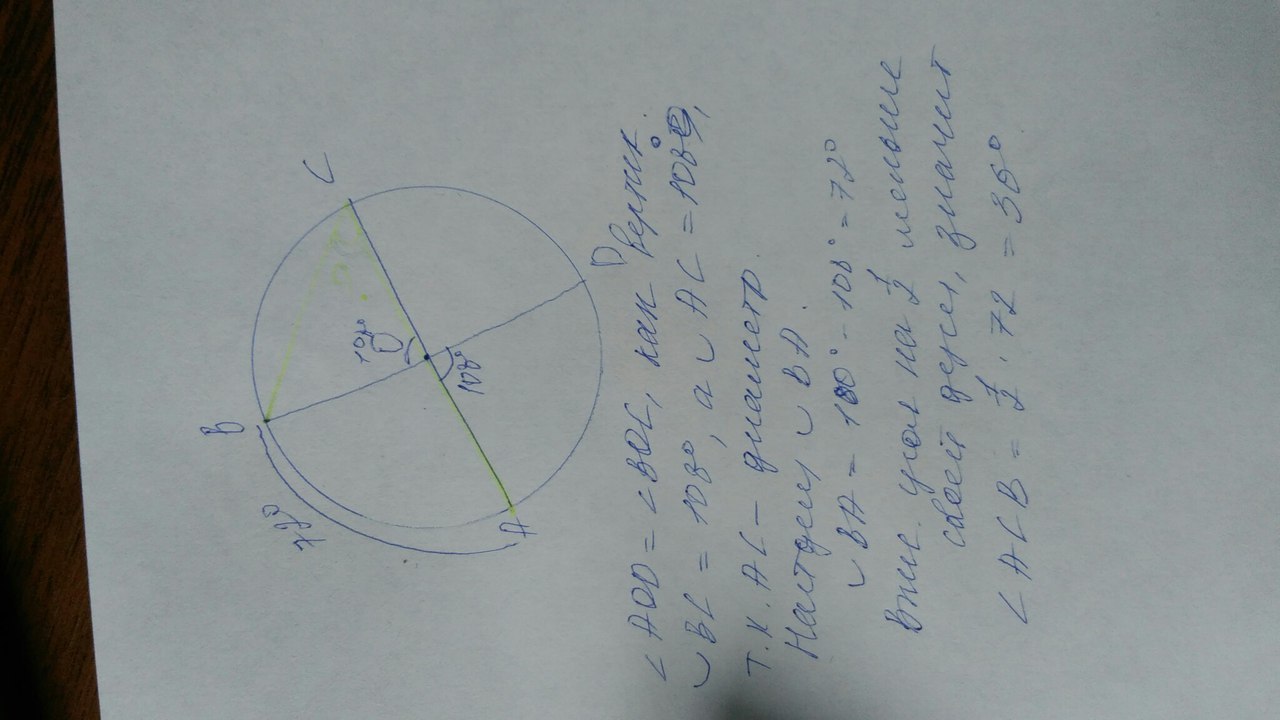 C
B
D
A
72°
108°
108°
∠ AOD = ∠ BOC, как вертик.
◡ BC = 108°, а ◡ AC = 180°,
т.к. AC - диаметр.
Найдем ◡ BA.
◡ BA = 180° - 108° = 72°
Впис. угол на 1/2 меньше
своей дуги, значит
∠ ACB = 1/2 · 72 = 36°